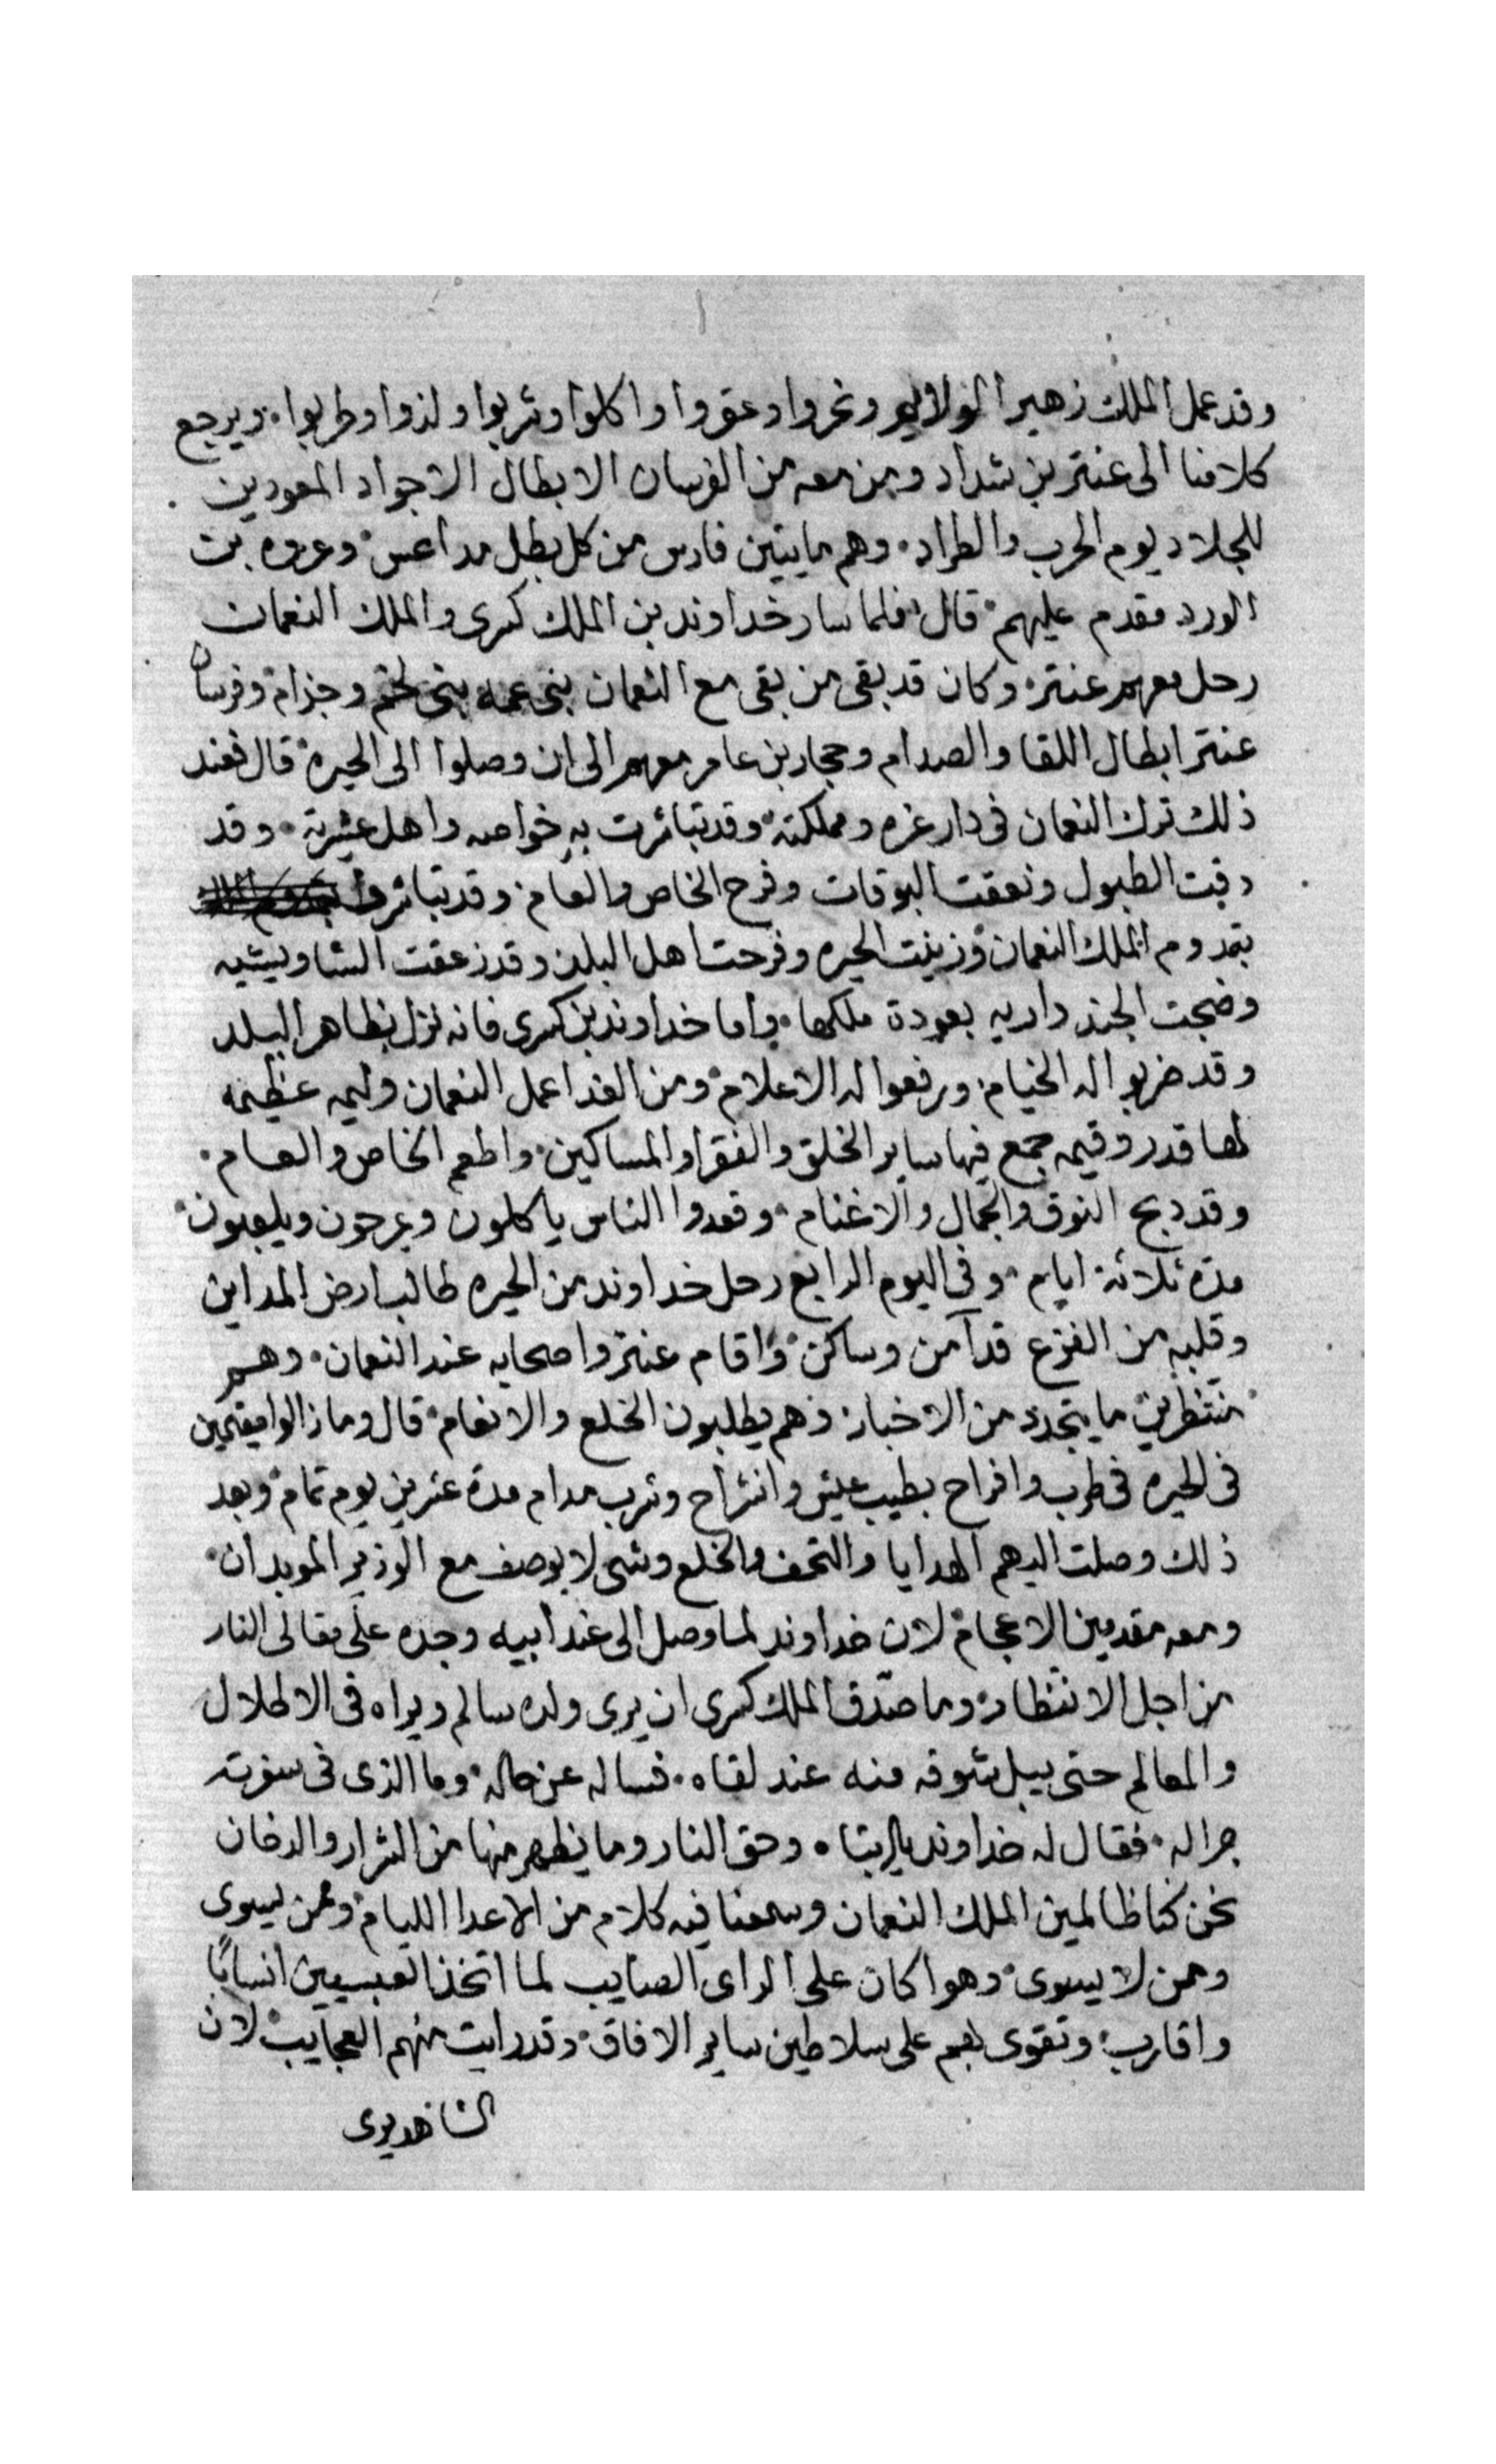 وقد عمل الملك زهير الولايم ونحروا وعقروا واكلوا وشربوا ولذوا وطربوا. ويرجع
كلامنا الى عنتر بن شداد ومن معه من الفرسان الابطال الاجواد المعودين
للجلاد يوم الحرب والطراد. وهم مايتين فارس من كل بطل مداعس وعروه بن
الورد مقدم عليهم قال فلما سار خداوند بن الملك كسرى والملك النعمان
رحل معهم عنتر وكان قد بقى من بقى مع النعمان بنى عمه بنى لخم وجزام وفرسان
عنتر ابطال اللقا والصدام وحجار بن عامر معهم الى ان وصلوا الى الحيره قال فعند
ذلك ترك النعمان فى دار عزه ومملكته وقد تباشرت به خواصه واهل عشيرته. وقد
دقت الطبول ونعقت البوقات وفرح الخاص والعام وقد تباشروا
بقدوم الملك النعمان وزينت الحيره وفرحت اهل البلد وقد زعقت الشاويشيه
وضجت الجنداريه بعودة ملكها. واما خداوند بن كسرى فانه نزل بظاهر البلد
وقد ضربوا له الخيام ورفعوا له الاعلام ومن الغد اعمل النعمان وليمه عظيمه
لها قدر وقيمه جمع فيها ساير الخلق والفقرا والمساكين واطعم الخاص والعام.
وقد دبح النوق والجمال والاغنام وقعدوا الناس ياكلون ويمرحون ويلعبون
مدة ثلاثة ايام وفى اليوم الرابع رحل خداوند من الحيره طالب ارض المداين
وقلبه من الفزع قد آمن وساكن واقام عنتر واصحابه عند النعمان. وهم
منتظرين ما يتجدد من الاخبار وهم يطلبون الخلع والانعام قال وما زالوا مقيمين
فى الحيره فى طرب وافراح بطيب عيش وانشراح وشرب مدام مدة عشرين يوم تمام وبعد
ذلك وصلت اليهم الهدايا والتحف والخلع وشى لا يوصف مع الوزير الموبدان
ومعه مقدمين الاعجام لان خداوند لما وصل الى عند ابيه وجده على مقالى النار
من اجل الانتظار وما صدق الملك كسرى ان يرى ولده سالم ويراه فى الاطلال
والمعالم حتى يبل شوقه منه عند لقاه. فساله عن حاله وما الذى فى سفرته
جرا له. فقال له خداوند يا ابتاه وحق النار وما يظهر منها من الشرار والدخان
نحن كنا ظالمين الملك النعمان وسمعنا فيه كلام من الاعدا الليام وممن يسوى
وممن لا يسوى وهوا كان على الراى الصايب لما اتخذ العبسيين انسابًا
واقارب وتقوى بهم على سلاطين ساير الافاق وقد رايت منهم العجايب لان
الشاهد يرى